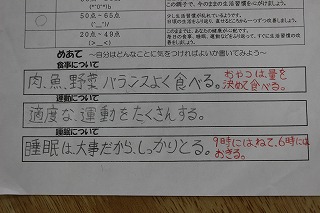 この調子で、そのままの生活習慣を心がけましょう。
(*^o^*)
50点~65点
(^_^)
20点~48点
(>_<)
めあて ~自分はどんなことに気をつければよいか書いてみよう~
食事について
肉、魚、野菜、バランスよく食べる。
おやつは、量を
決めて食べる。
運動について
適度な、運動をたくさんする。
睡眠について
睡眠は、大事だから、しっかりとる。
9時にはねて、6時には
おきる。